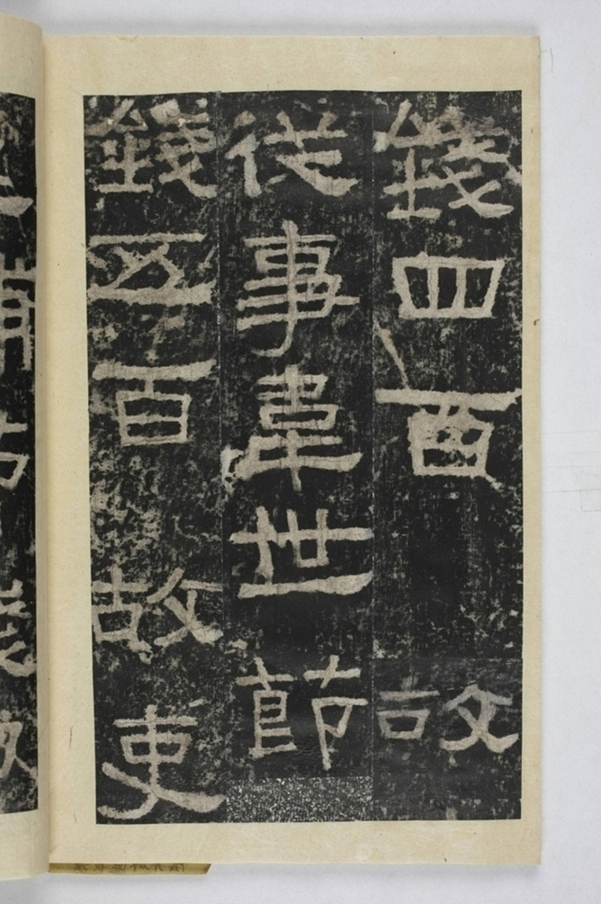 錢四百故
從事韋世節
錢五百故吏